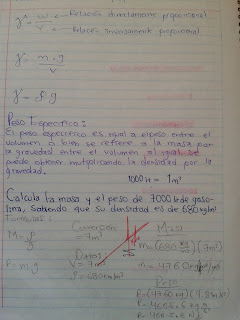 γ = w → Relación directamente proporcional
v → Relación Inversamente proporcional
γ = m.g
v
γ = ρ g
Peso Específico:
El peso especifico es igual a el peso entre el
volumen o bien se refiere a la masa por
la gravedad entre el volumen al igual se
puede obtener multiplicando la densidad por la
gravedad.
1000 lt = 1m³
Calcula la masa y el peso de 7000 lt de gaso-
lina, sabiendo que su densidad es de 680 kg/m³
Formulas:
Conversión
= 7m³
Datos
V = 7m³
ρ = 680 kg/m³
P = m.g
Masa
m = (680 kg/m³)(7m³)
m = 4760
Peso